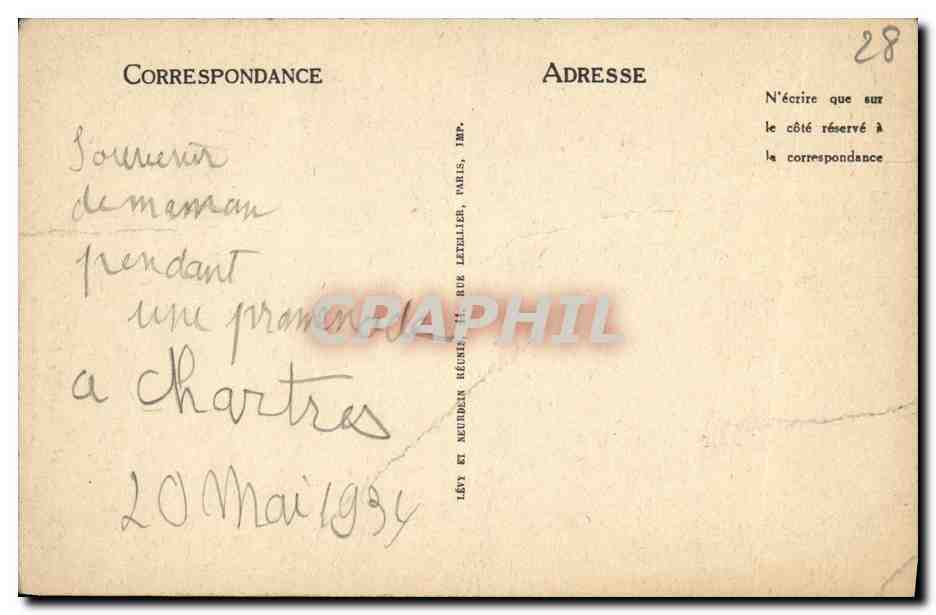 28
CORRESPONDANCE
ADRESSE
N'écrire que sur
le côté réservé à
la correspondance
Souvenir
de maman
pendant
une promenade
a Chartres
20 Mai 1934
LÉVY ET NEURDEIN RÉUNIS, 44, RUE LETELLIER, PARIS, IMP.
CPAPHIL